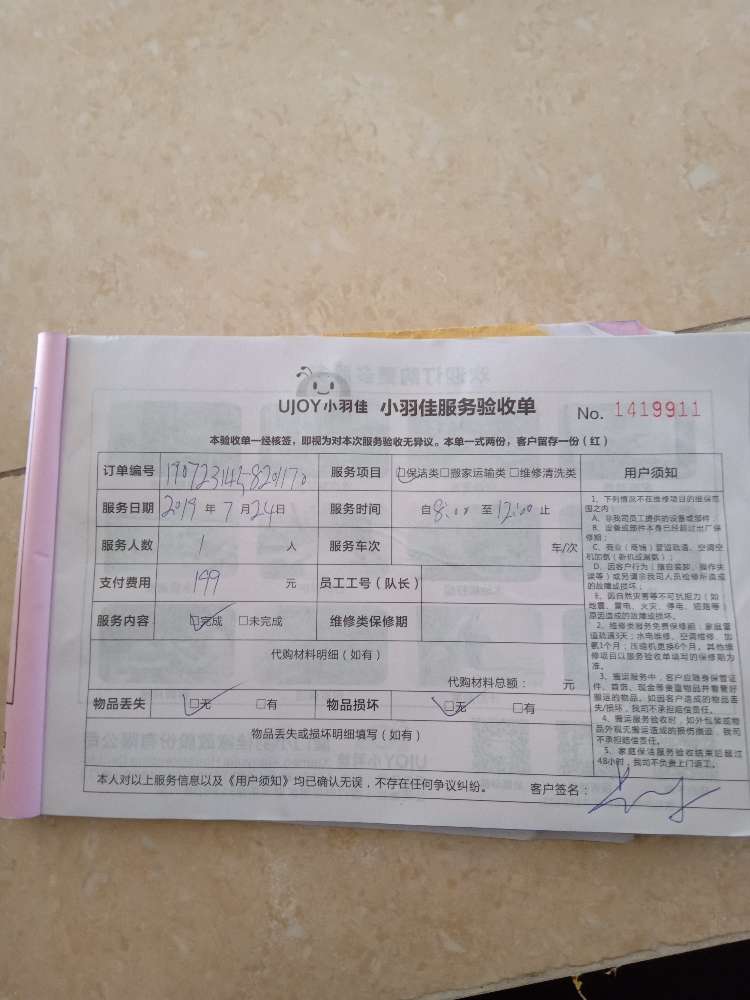 UJOY小羽佳 小羽佳服务验收单 No. 1419911
本验收单一经核签，即视为对本次服务验收无异议。本单一式两份，客户留存一份（红）
订单编号 190723145820170 服务项目 □保洁类□搬家运输类 □维修清洗类 用户须知
服务日期 2019 年 7 月 24日 服务时间 自 8:00 至 12:00 止
服务人数 1 人 服务车次 车/次
支付费用 199 元 员工工号（队长）
服务内容 □完成 □未完成 维修类保修期
代购材料明细（如有）
代购材料总额： 元
物品丢失 □无 □有 物品损坏 □无 □有
物品丢失或损坏明细填写（如有）
本人对以上服务信息以及《用户须知》均已确认无误，不存在任何争议纠纷。 客户签名：
1、下列情况不在维修项目的维保范
围之内：
A、非我司员工提供的设备或部件；
B、设备或部件本身已经超过出厂保
修期；
C、商业（商场）管道疏通、空调空
机加氨（新机或漏氨）；
D、因客户行为（擅自装卸、操作失
误等）或另请非我司人员检修所造成
的故障或损坏；
E、因自然灾害等不可抗拒力（如：
地震、雷电、火灾、停电、短路等）
原因造成的故障或损坏。
2、维修类服务免费保修期：家庭管
道疏通3天；水电维修、空调维修、加
氨1个月；压缩机更换6个月，其他维
修项目以服务验收单填写的保修期为
准。
3、搬运服务中，客户应随身保管证
件、首饰、现金等贵重物品并看管好
搬运的物品。如因客户造成的物品丢
失/损坏，我司不承担赔偿责任。
4、搬运服务验收时，如外包装或物
品外观无搬运造成的损伤痕迹，我司
不承担赔偿责任。
5、家庭保洁服务验收结束后超过
48小时，我司不负责上门返工。